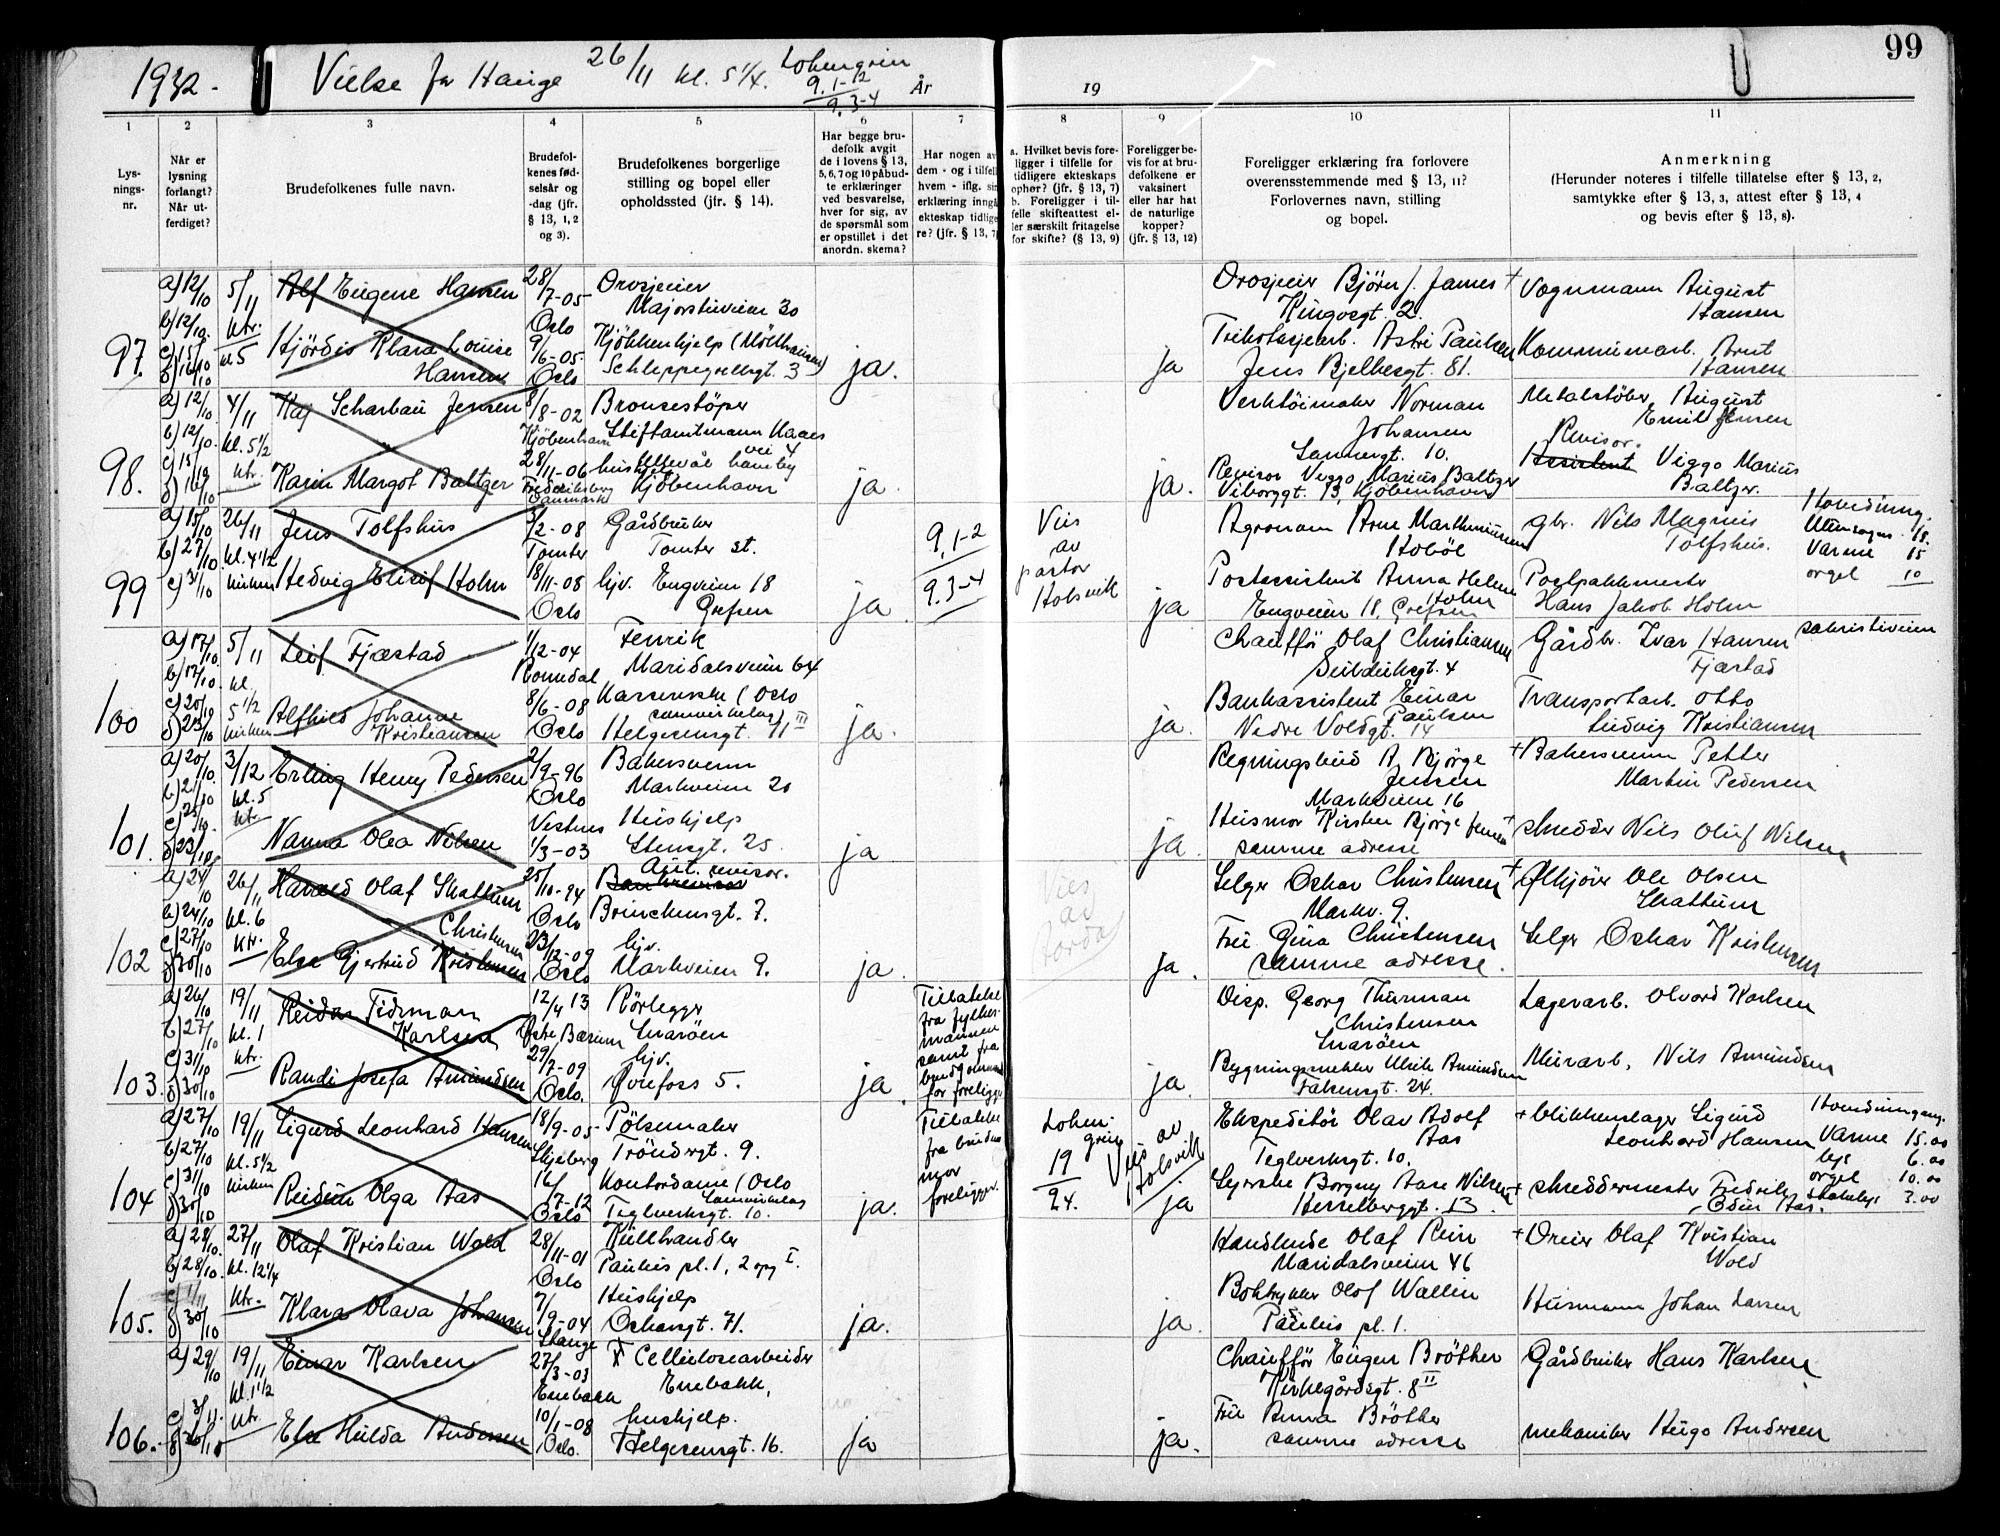 1932.
Vielse for Hauge 26/11 kl. 5 1/4. Lohengrin
9. 1-12
9. 3-4
År
19
99
1
2
3
4
5
6
7
8
9
10
11
Lys-
nings-
nr.
Når er
lysning
forlangt?
Når ut-
ferdiget?
Brudefolkenes fulle navn.
Brudefol-
kenes fød-
selsår og
-dag (jfr.
§ 13, 1, 2
og 3).
Brudefolkenes borgerlige
stilling og bopel eller
opholdssted (jfr. § 14).
Har begge bru-
defolk avgit
de i lovens § 13,
5, 6, 7 og 10 påbud-
te erklæringer
ved besvarelse,
hver for sig, av
de spørsmål som
er opstillet i det
anordn. skema?
Har nogen av
dem - og i tilfelle
hvem - iflg. sin
erklæring inngå
ekteskap tidlige-
re? (jfr. § 13, 7)
a. Hvilket bevis fore-
ligger i tilfelle for
tidligere ekteskaps
ophør? (jfr. § 13, 7)
b. Foreligger i til-
felle skifteattest el-
ler særskilt fritagelse
for skifte? (§ 13, 9)
Foreligger be-
vis for at bru-
defolkene er
vaksinert
eller har hat
de naturlige
kopper?
(jfr. § 13, 12)
Foreligger erklæring fra forlovere
overensstemmende med § 13, 11?
Forlovernes navn, stilling
og bopel.
Anmerkning
(Herunder noteres i tilfelle tillatelse efter § 13, 2,
samtykke efter § 13, 3, attest efter § 13, 4
og bevis efter § 13, 8).
97.
a) 12/10
b) 12/10
5/11
ktr.
kl 5
Alf Eugene Hansen
Hjördis Klara Louise
Hansen
28/7-05
Oslo
9/6-05
Oslo
Drosjeeier
Majorstuveien 30
Kjökkenhjelp (Möllhausen)
Schleppegrellsgt. 3
ja.
ja
Drosjeeier Björn J. James
Kingosgt. 2.
Trikotasjearb. Astri Paulsen
Jens Bjelkesgt. 81.
Vognmann August
Hansen
Kommunearb. Arnt
Hansen
98.
a) 12/10
b) 12/10.
4/11
kl. 5 1/2
ktr.
Kaj Scharbau Jensen
Karin Margot Baltzer
8/8-02
Kjöbenhavn
28/11-06
Frederiksberg
Danmark
Broncestöper
Stiftamtmann Kaaes
vei 4
Ullevål haveby
hushjelp
Kjöbenhavn
ja.
ja.
Verktöimaker Norman
Johansen
Sannergt. 10.
Revisor Viggo Marius Baltzer
Viborggt. 13, Kjöbenhavn
Metalstöber August
Emil Jensen
Revisor.
Assistent Viggo Marius
Baltzer.
99
a) 15/10
b) 27/10
c) 31/10
26/11
kl. 4 1/2
kirken
Jens Tolfshus
Hedvig Elisif Holm
3/2-08
Tomter
18/11-08
Oslo
Gårdbruker
Tomter st.
hjv. Engveien 18
Grefsen
ja
9. 1-2
9. 3-4
Viet
av
pastor
Holsvik
ja
Agronom Arne Marthinusen
Hobøl
Postassistent Anna Helene
Holm
Engveien 18, Grefsen
gbr. Nils Magnus
Tolfshus.
Postpakkmester
Hans Jakob Holm
Hovedinng.
Utensogns 18.
Varme 15
orgel 10
sakristiveien
100
a) 17/10
b) 17/10.
c) 20/10
d) 23/10
5/11
kl.
5 1/2
kirken
Leif Fjæstad
Alfhild Johanne
Kristiansen
1/12-04
Romedal
8/6-08
Oslo
Fenrik
Maridalsveien 64
Kasserske (Oslo
samvirkelag)
Helgesensgt. 11 III
ja.
ja.
Chauffør Olaf Christiansen
Seilduksgt. 4
Bankassistent Einar
Paulsen
Nedre Voldgt. 14
Gårdbr. Ivar Hansen
Fjæstad
Transportarb. Otto
Ludvig Kristiansen
101.
a) 20/10
b) 21/10
c) 25/10.
d) 23/10
3/12
kl. 5
ktr.
Erling Henry Pedersen
Nanna Olea Nilsen
2/9-96
Oslo
Vestnes
1/3-03
Bakersvenn
Markveien 20
Hushjelp
Stensgt. 25.
ja
ja
Regningsbud R. Bjørge
Jensen
Markveien 16
Husmor Kirsten Bjørge Jensen
samme adresse
Bakersvenn Petter
Martin Pedersen
Skredder Nils Oluf Nilsen
102
a) 24/10
b) 24/10
c) 27/10
d) 30/10
26/11
kl. 6
ktr.
Harald Olaf Skattum
Christensen
Else Gjertrud Kristensen
25/10-94
Oslo
23/12-09
Oslo
Aut. revisor.
Bankrevisor
Brinckensgt. 7.
hjv.
Markveien 9.
ja.
Vies
av
Hordal
ja.
Selger Oskar Christensen
Markv. 9.
Fru Gina Christensen
samme adresse.
Ølkjører Ole Olsen
Skattum
Selger Oskar Kristensen
103.
a) 26/10
b) 27/10
c) 31/10
d) 30/10
19/11
kl. 1
ktr.
Reidar Fidrman
Karlsen
Randi Josefa Amundsen
12/4 13
Østre Bærum
29/7-09
Oslo.
Rørlegger
Snarøen
hjv.
Øvrefoss 5.
ja
Tillatelse
fra fylkes-
mannen
samt fra
brudgommen
for foreligger
ja
Disp. Georg Thurman
Christensen
Snarøen
Bygningssnekker Ulrik Amundsen
Falsensgt. 24.
Lagerarb. Olvard Karlsen
Murarb. Nils Amundsen
104
a) 27/10
b) 27/10
c) 31/10
d) 30/10
19/11
kl. 5 1/2
kirken
Sigurd Leonhard Hansen
Reidun Olga Aas
18/9-05
Skjeberg
16/7-12
Oslo
Pölsemaker
Tröndergt. 9.
Kontordame (Oslo
Samvirkelag
Teglverksgt. 10.
ja.
Tillatelse
fra brudens
mor
foreligger.
Lohen-
grin
19
24.
Vies av
Holsvik
ja
Ekspeditör Olav Adolf
Aas
Teglverksgt. 10.
Syerske Borgny Aase Nilsen
Hesselbergsgt. 13
blikkenslager Sigurd
Leonhard Hansen
Skreddermester Fredrik
Odin Aas.
Hovedinngang.
Varme 15.00
lys 6.00
orgel 10.00
3.00
105.
a) 28/10.
b) 28/10.
c) 1/11
d) 30/10
27/11
kl. 12 1/4
ktr.
Olaf Kristian Wold
Klara Olava Johansen
28/11-01
Oslo
7/9-04
Stange
Kullhandler
Paulus pl. 1, 2 opg I.
Hushjelp
Oskarsgt. 71.
ja.
ja.
Handlende Olaf Rein
Maridalsveien 46
Boktrykker Olof Wallin
Paulus pl. 1.
Dreier Olaf Kristian
Wold
Husmann Johan Larsen
106.
a) 29/10
c) 3/11.
19/11
kl. 1 1/2
ktr.
Einar Karlsen
Else Hulda Andersen
27/3-03
Enebakk
10/1-08
Oslo.
Cellulosearbeider
Enebakk,
hushjelp.
Helgesensgt. 16.
ja
ja.
Chaufför Eugen Bröther
Kirkegårdsgt. 8 II
Fru Anna Bröther
samme adresse
Gårdbruker Hans Karlsen
mekaniker Hugo Andersen